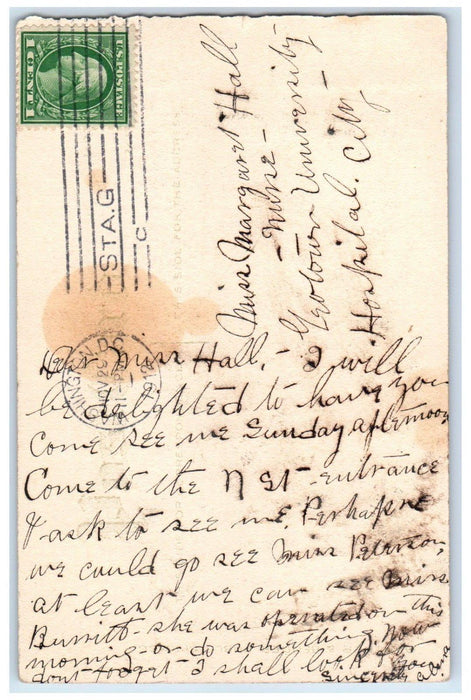 U.S. POSTAGE
1 CENT 1
STA.G
C
WASHINGTON, D.C.
NOV 29
11 PM
SIDE FOR THE ADDRESS
Miss Margaret Hall
Nurse -
Geotown University
Hospital. City
Dear Miss Hall, - I will
be delighted to have you
come see me Sunday afternoon
Come to the N St - entrance
& ask to see me. Perhaps
we could go see Miss Peterson,
at least we can see Miss
Burritt - she was operated on this
morning - or do something. Now
dont forget - I shall look for
you
Sincerely